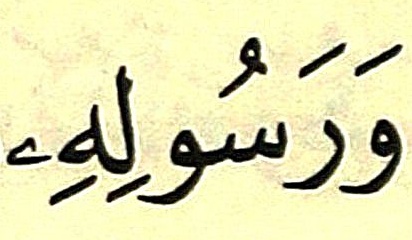 وَرَسُولِهِۦ